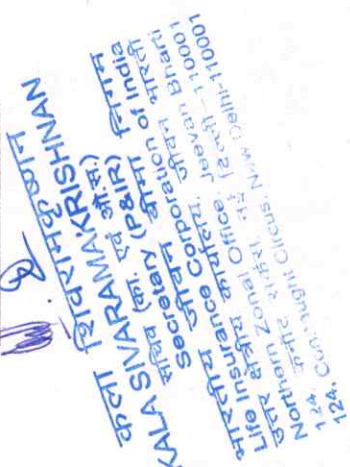 कला शिवरामकृष्णन
KALA SIVARAMAKRISHNAN
सचिव (का. एवं औ.सं.)
Secretary (P&IR)
भारतीय जीवन बीमा निगम
Life Insurance Corporation of India
उत्तर क्षेत्रीय कार्यालय, जीवन भारती
Northern Zonal Office, Jeevan Bharti
124, कनॉट सर्कस, नई दिल्ली-110001
124, Connaught Circus, New Delhi-110001